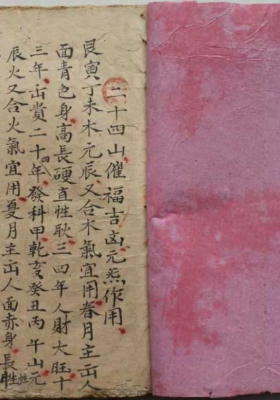 二十四山催福吉凶元炁作用
艮寅丁未木元辰又合木氣宜用春月主出人
面青色身高長硬直性耿三四年人財大旺十
三年出貴二十四年發科甲乾亥癸丑丙午山元
辰火又合火氣宜用夏月主出人面赤身長性